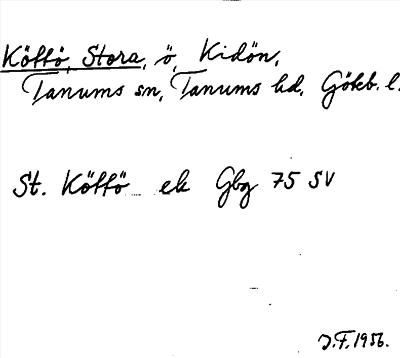 Köttö, Stora, ö, Kidön,
Tanums sn, Tanums hd, Göteb. l.
St. Köttö ek Gbg 75 SV
J.F. 1956.